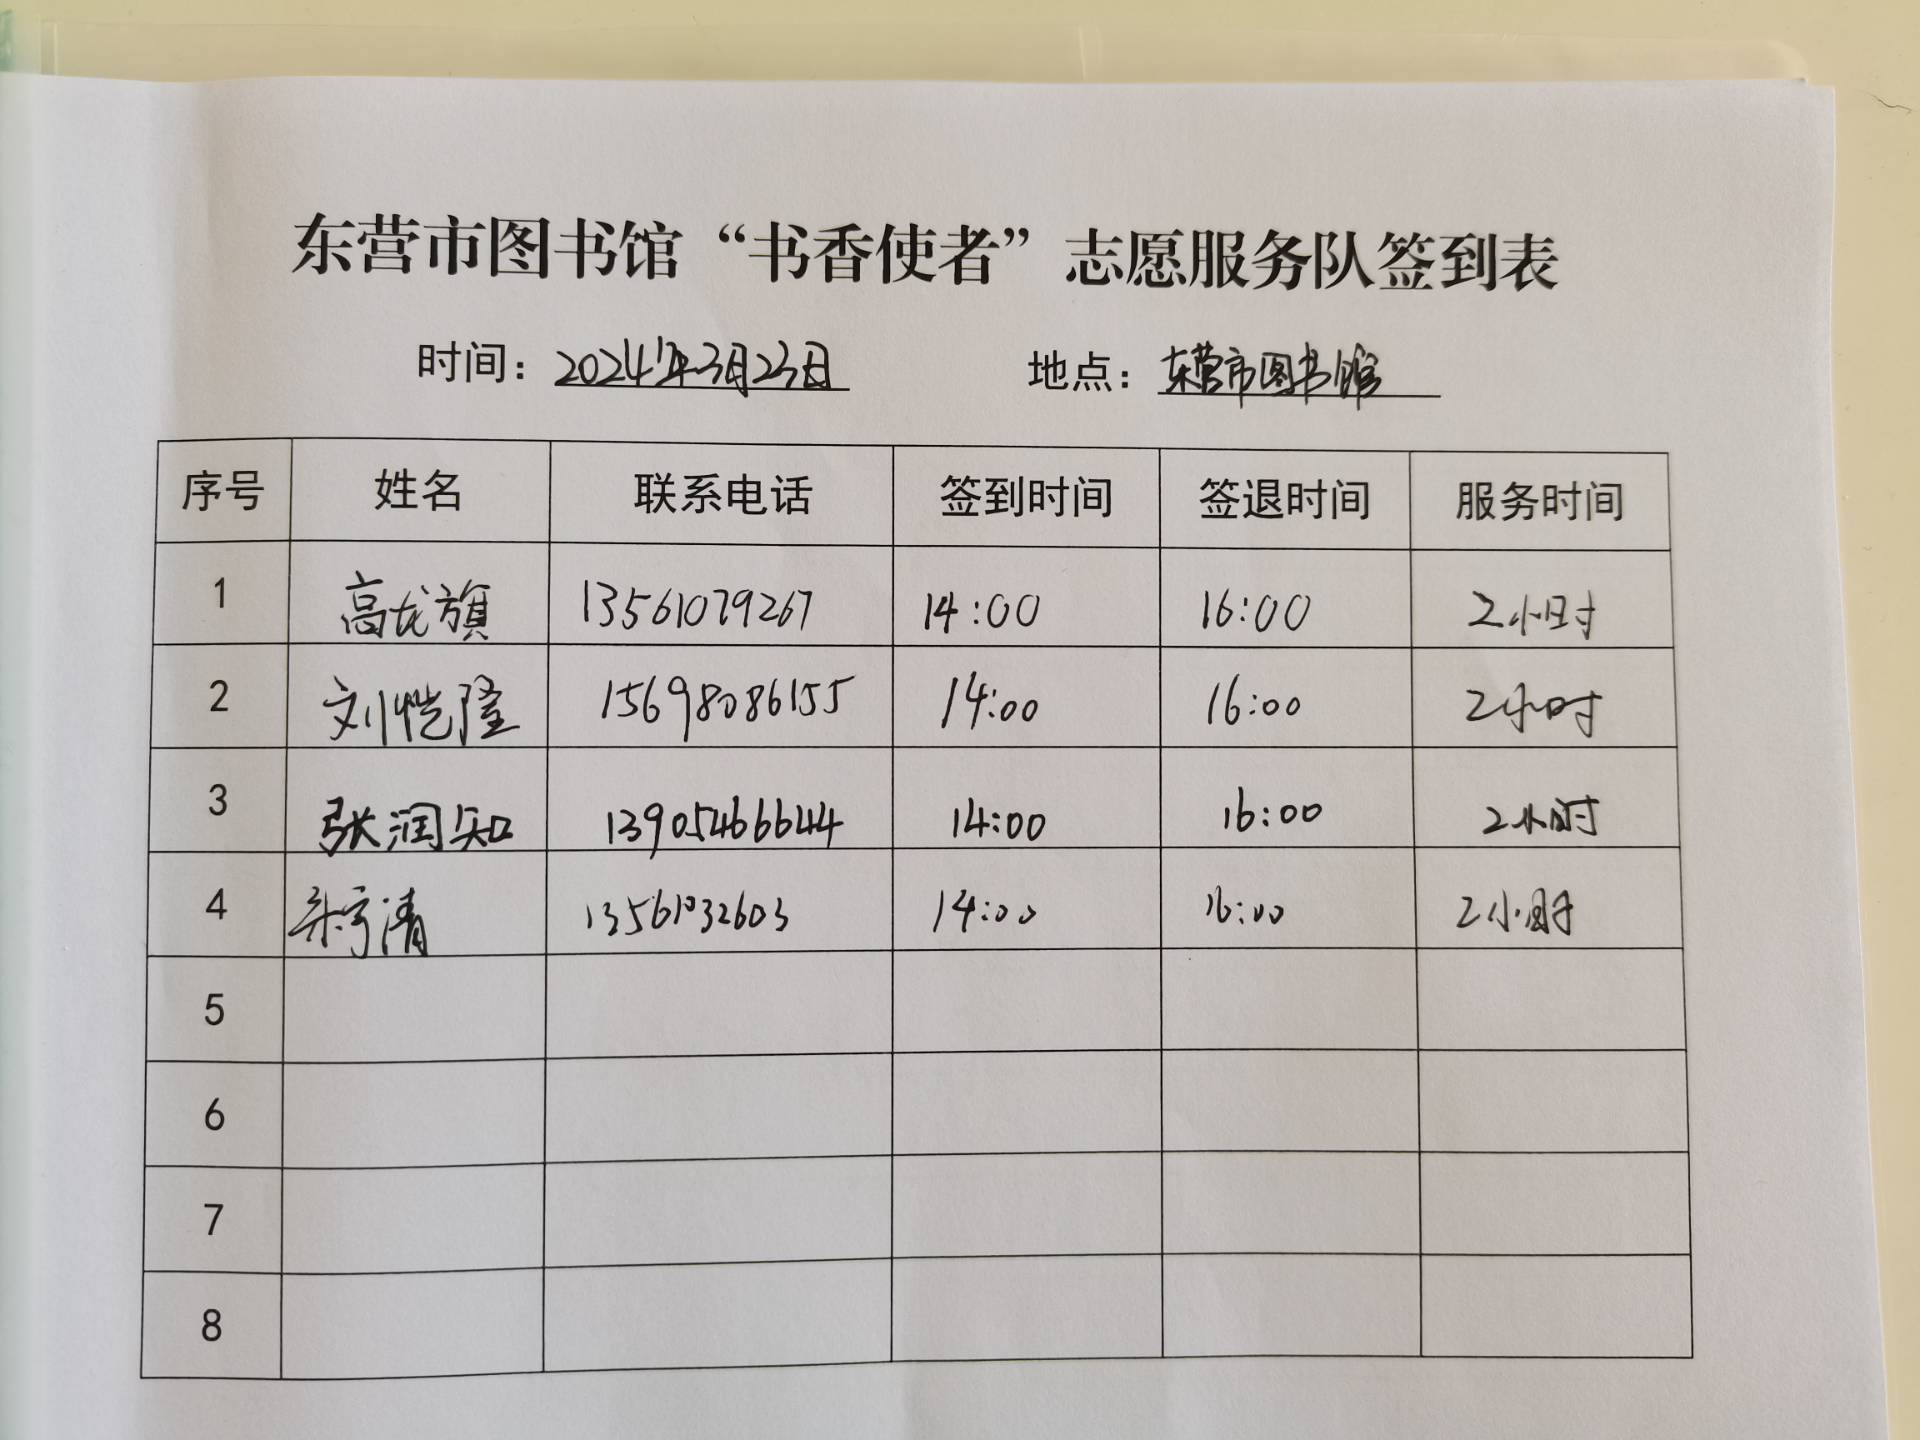 东营市图书馆“书香使者”志愿服务队签到表
时间：2024年3月23日 地点：东营市图书馆
序号 姓名 联系电话 签到时间 签退时间 服务时间
1 高龙旗 13561079267 14:00 16:00 2小时
2 刘恺隆 15698086155 14:00 16:00 2小时
3 张润知 13905466644 14:00 16:00 2小时
4 宇清 13561032603 14:00 16:00 2小时
5
6
7
8